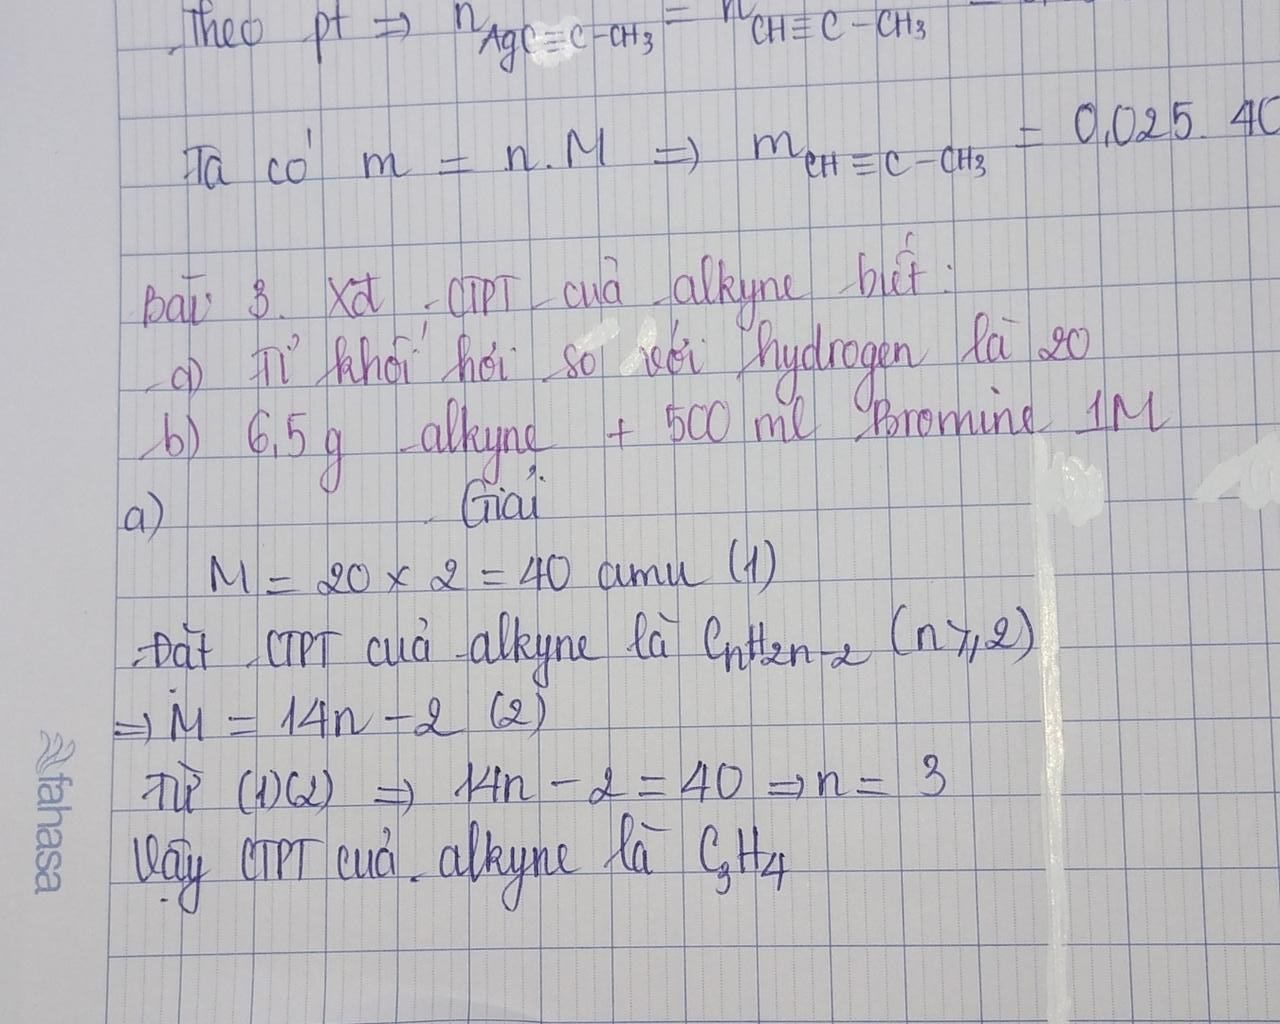 Theo pt ⇒ nAgC≡C-CH3 = nCH≡C-CH3
Ta có m = n.M ⇒ mCH≡C-CH3 = 0,025. 40
Bài 3. Xđ CTPT của alkyne biết:
a) Tỉ khối hơi so với hydrogen là 20
b) 6,5g alkyne + 500 ml Bromine 1M
Giải
a)
M = 20 × 2 = 40 amu (1)
Đặt CTPT của alkyne là CnH2n-2 (n ≥ 2)
⇒ M = 14n - 2 (2)
Từ (1)(2) ⇒ 14n - 2 = 40 ⇒ n = 3
Vậy CTPT của alkyne là C3H4
fahasa